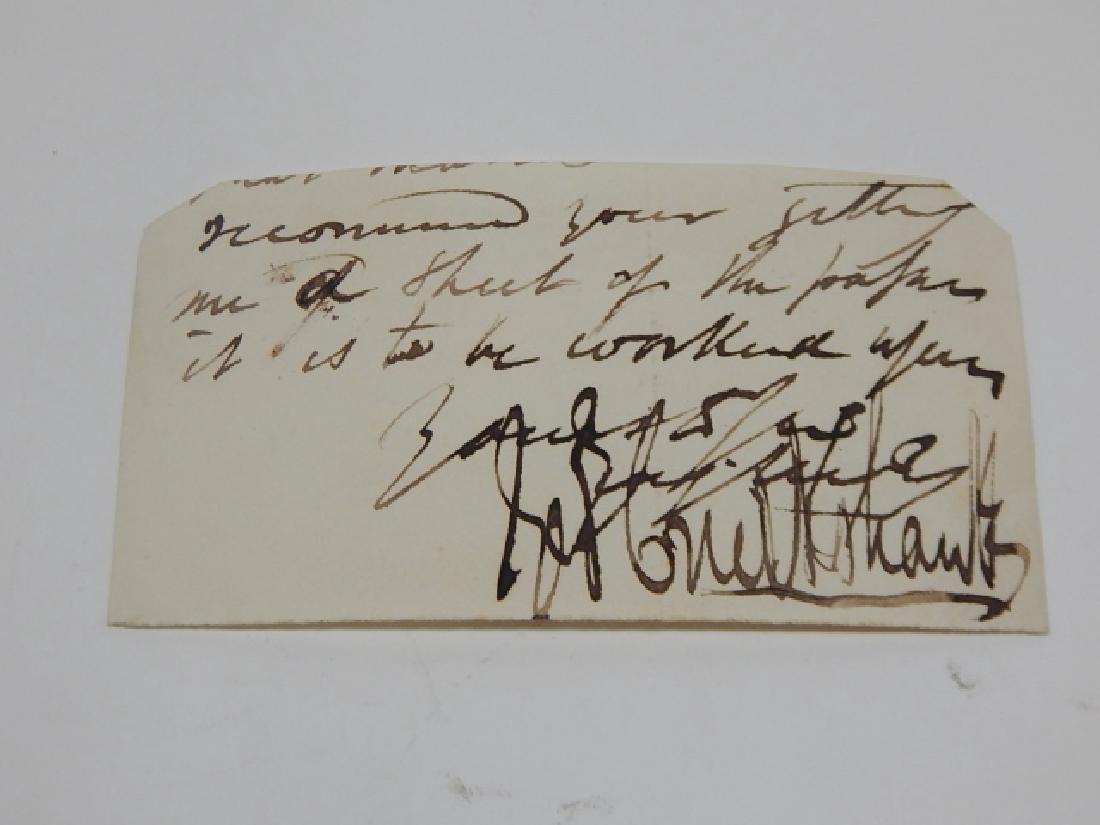 recommend your getting
me a sheet of the paper
it is to be worked upon
Yours
Geo Cruikshank